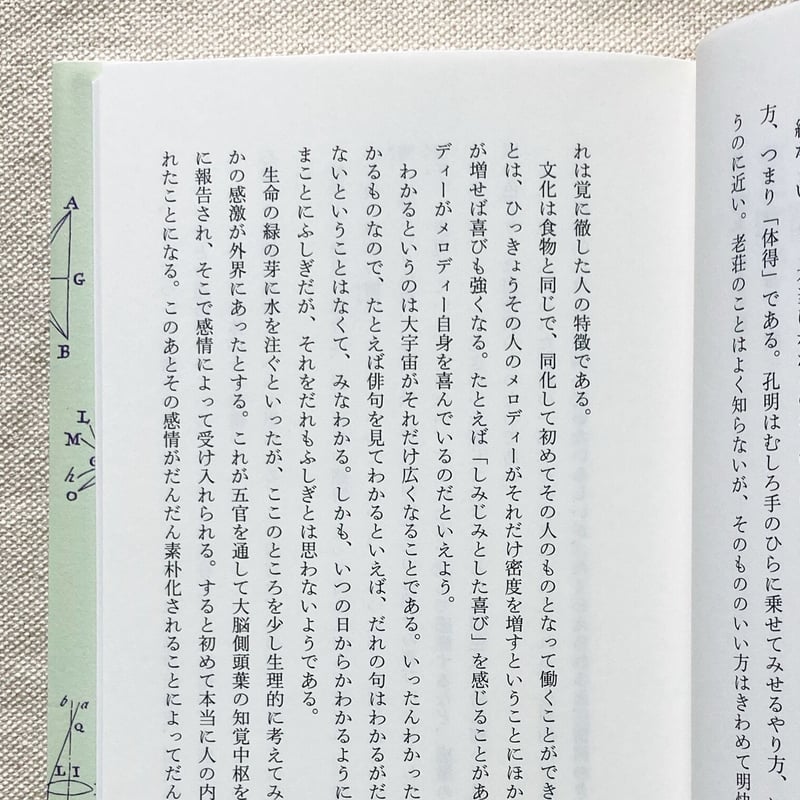 方、つまり「体得」である。孔明はむしろ手のひらに乗せてみせるやり方、
うのに近い。老荘のことはよく知らないが、そのもののいい方はきわめて明快
れは覚に徹した人の特徴である。
文化は食物と同じで、同化して初めてその人のものとなって働くことができ
とは、ひっきょうその人のメロディーがそれだけ密度を増すということにほか
が増せば喜びも強くなる。たとえば「しみじみとした喜び」を感じることがあ
ディーがメロディー自身を喜んでいるのだといえよう。
わかるというのは大宇宙がそれだけ広くなることである。いったんわかった
かるものなので、たとえば俳句を見てわかるといえば、だれの句はわかるがだ
ないということはなくて、みなわかる。しかも、いつの日からかわかるように
まことにふしぎだが、それをだれもふしぎとは思わないようである。
生命の緑の芽に水を注ぐといったが、ここのところを少し生理的に考えてみ
かの感激が外界にあったとする。これが五官を通して大脳側頭葉の知覚中枢を
に報告され、そこで感情によって受け入れられる。すると初めて本当に人の内
れたことになる。このあとその感情がだんだん素朴化されることによってだん
A
G
B
L
M
h
O
b a
Q
L I